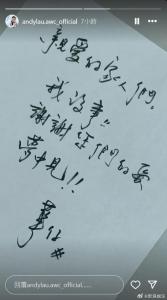 andylau.awc_official 7小時
親愛的家人們。
我沒事!!
謝謝您們的愛
夢中見!!
華仔
#
回覆andylau.awc_official......